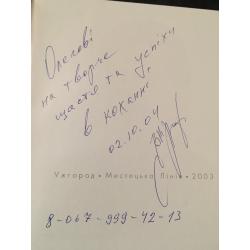 Олегові
на творче
щастя та успіхи
в коханні
02.10.04
Ужгород • Мистецька Лінія • 2003
8-067-999-42-13